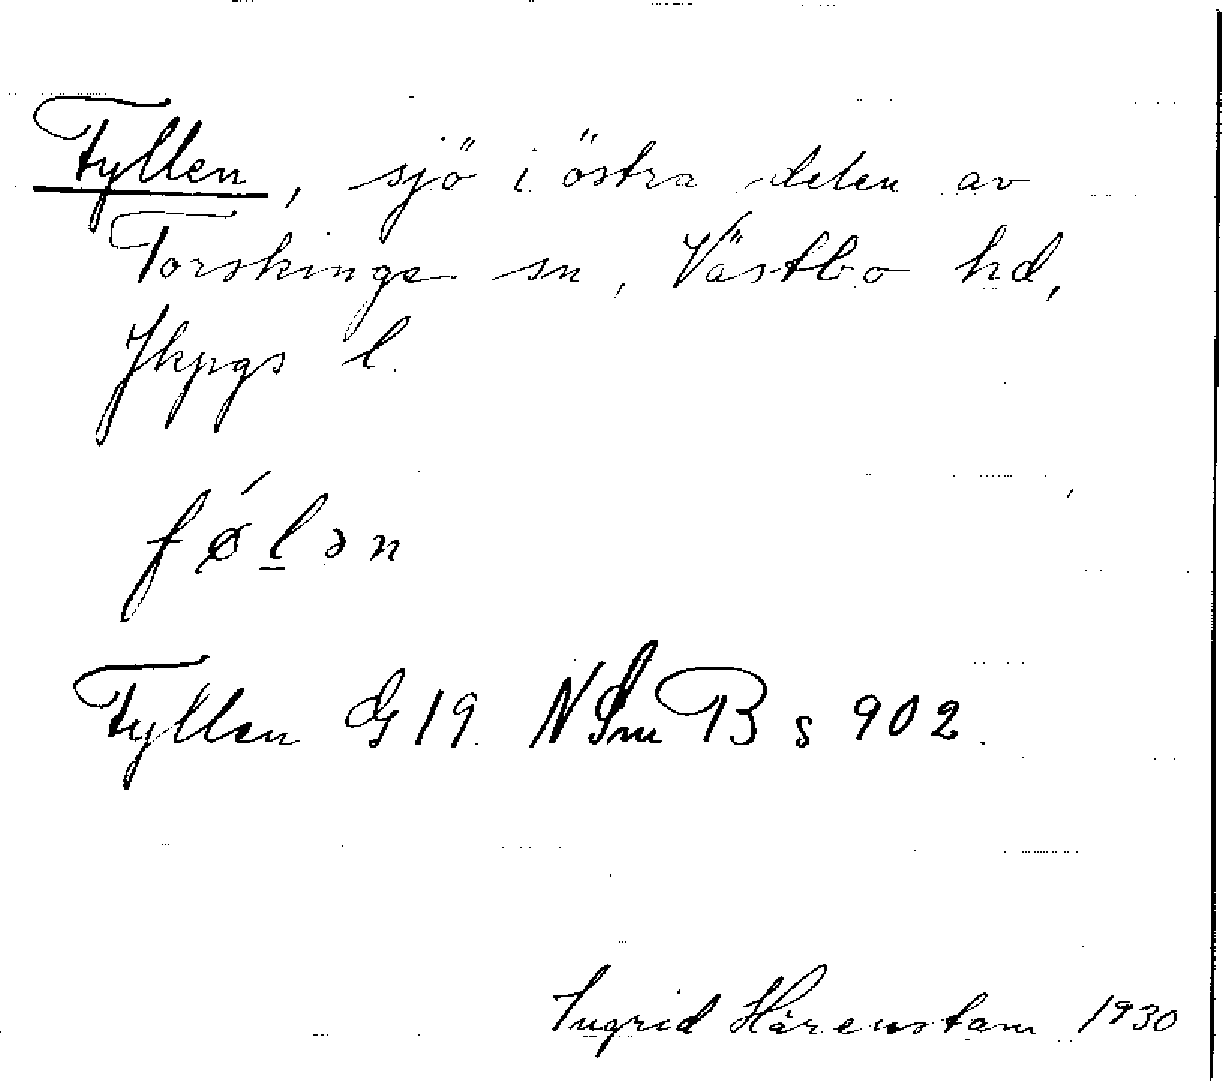 Fyllen, sjö i östra delen av
Torskinge sn, Västbo hd,
Jkpgs l.
fǿl̲ən
Fyllen G19. NSmB s 902.
Ingrid Härenstam 1930